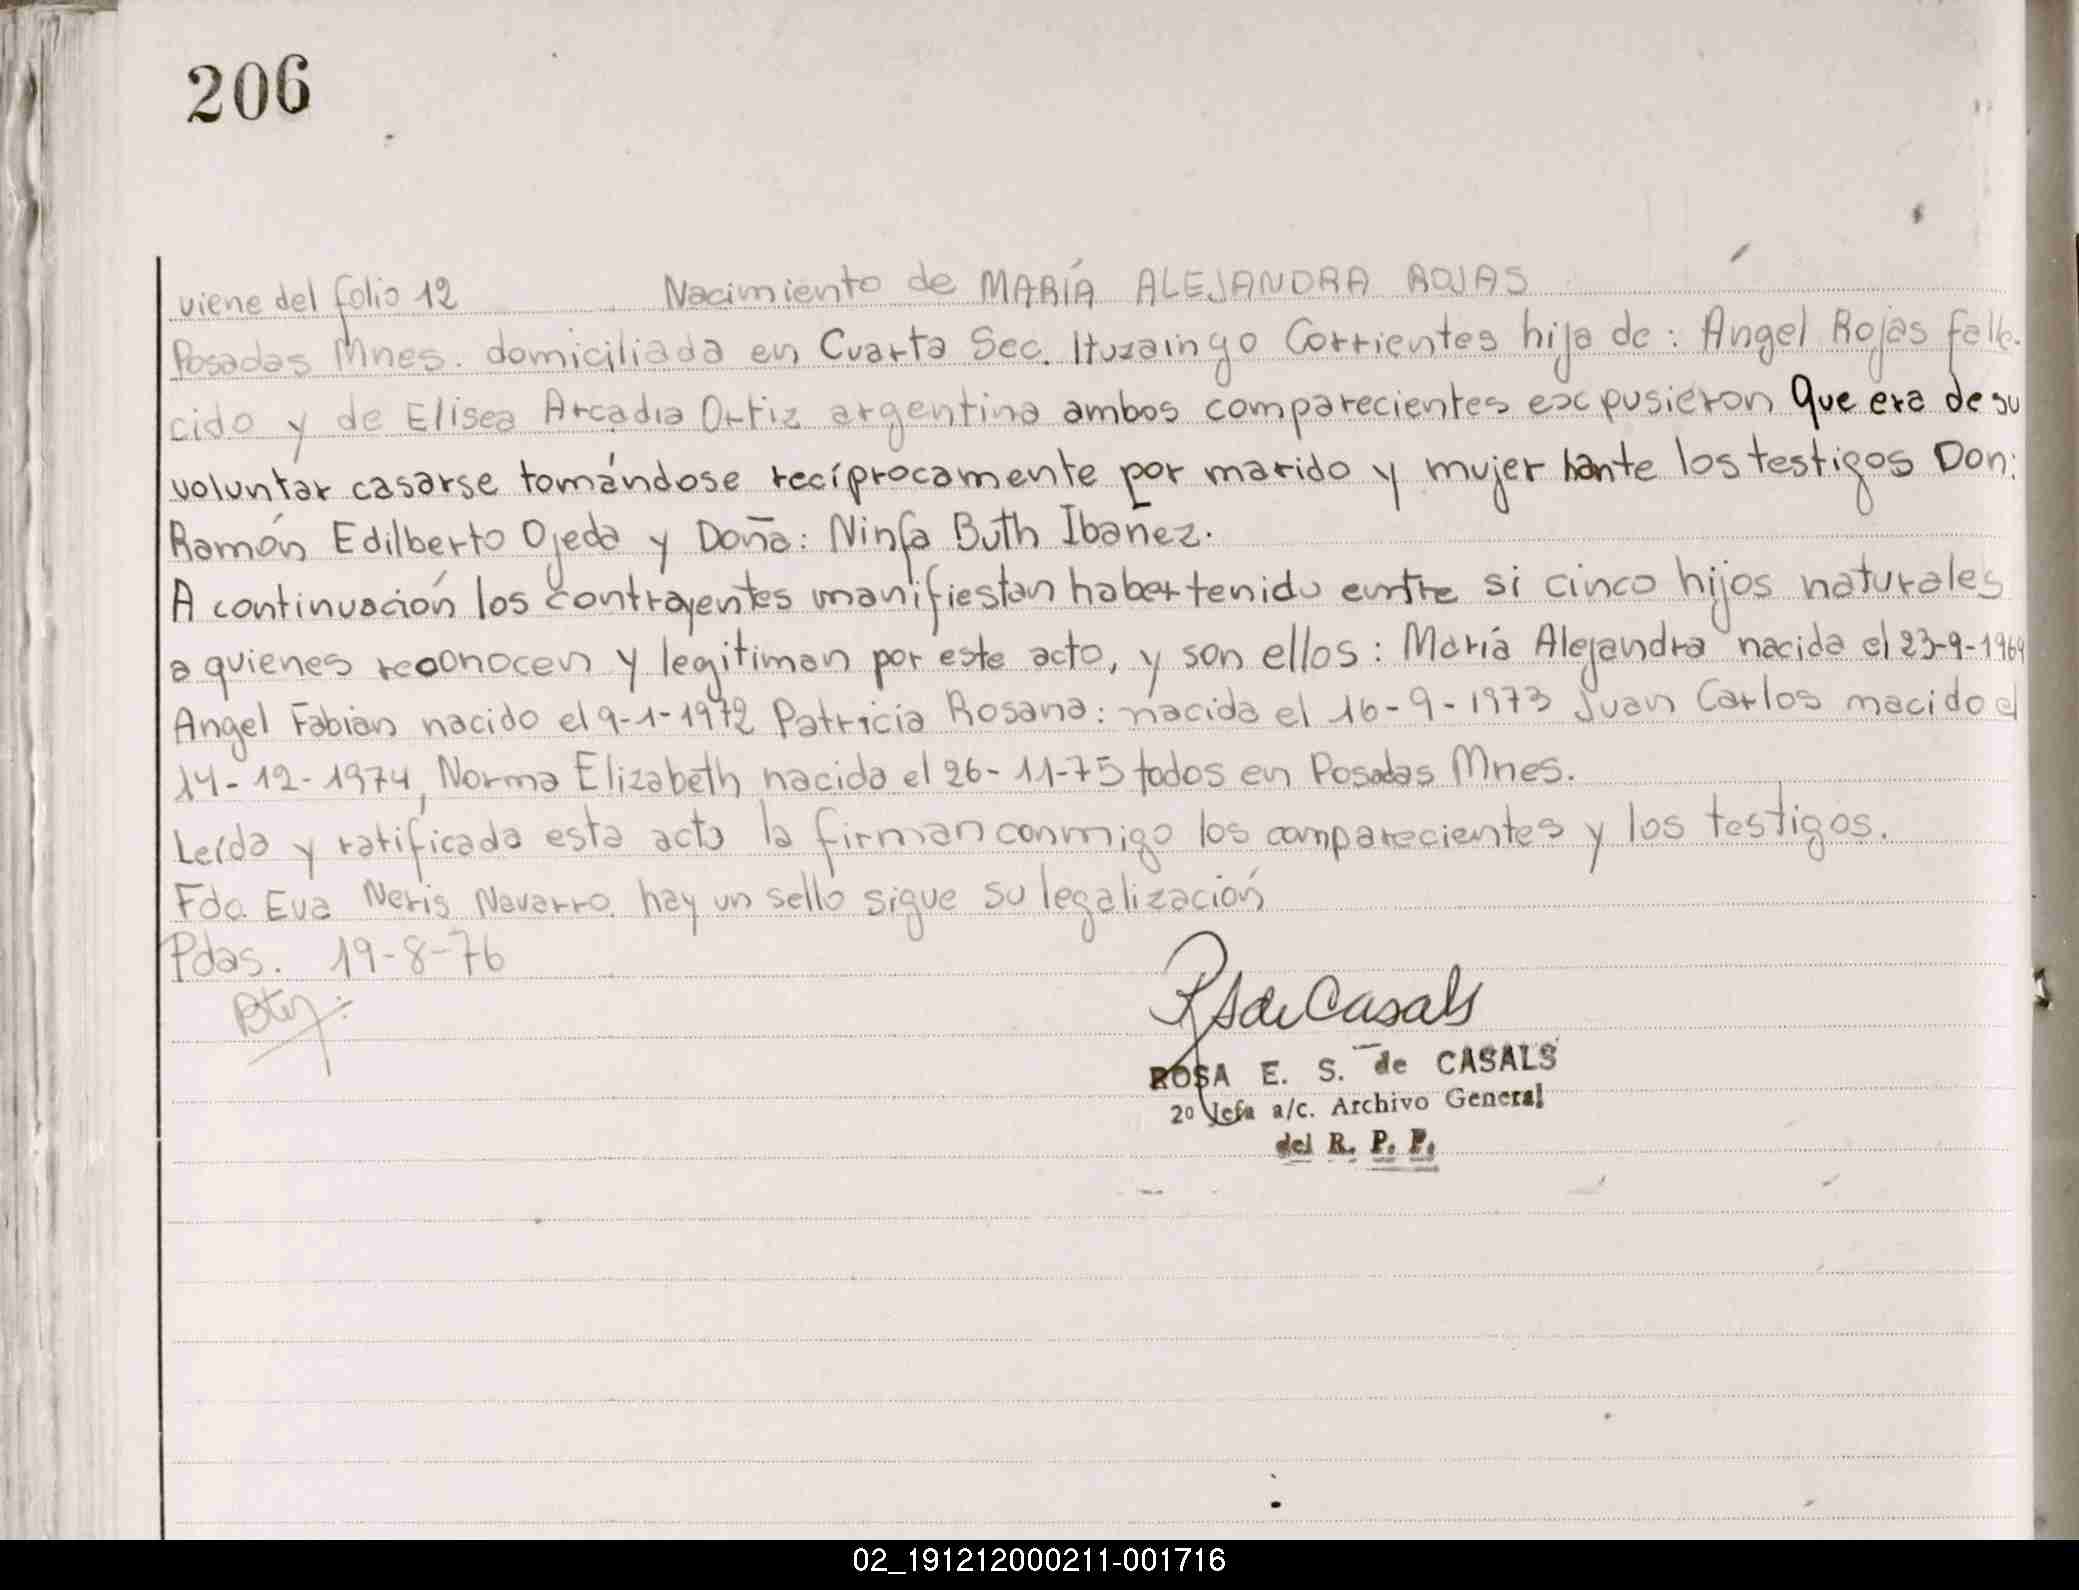 206
viene del folio 12 Nacimiento de MARÍA ALEJANDRA ROJAS
Posadas Mnes. domiciliada en Cuarta Sec. Ituzaingo Corrientes hija de: Angel Rojas falle-
cido y de Elisea Arcadia Ortiz argentina ambos comparecientes expusieron Que era de su
voluntar casarse tomándose recíprocamente por marido y mujer hante los testigos Don:
Ramón Edilberto Ojeda y Doña: Ninfa Buth Ibañez.
A continuación los contrayentes manifiestan haber tenido entre si cinco hijos naturales
a quienes reconocen y legitiman por este acto, y son ellos: María Alejandra nacida el 23-9-1969
Angel Fabian nacido el 9-1-1972 Patricia Rosana: nacida el 16-9-1973 Juan Carlos nacido el
14-12-1974, Norma Elizabeth nacida el 26-11-75 todos en Posadas Mnes.
Leída y ratificada esta acta la firman conmigo los comparecientes y los testigos.
Fdo. Eva Neris Navarro. hay un sello sigue su legalización
Pdas. 19-8-76
RS de Casals
ROSA E. S. de CASALS
2º Jefa a/c. Archivo General
del R. P. P.
02_191212000211-001716